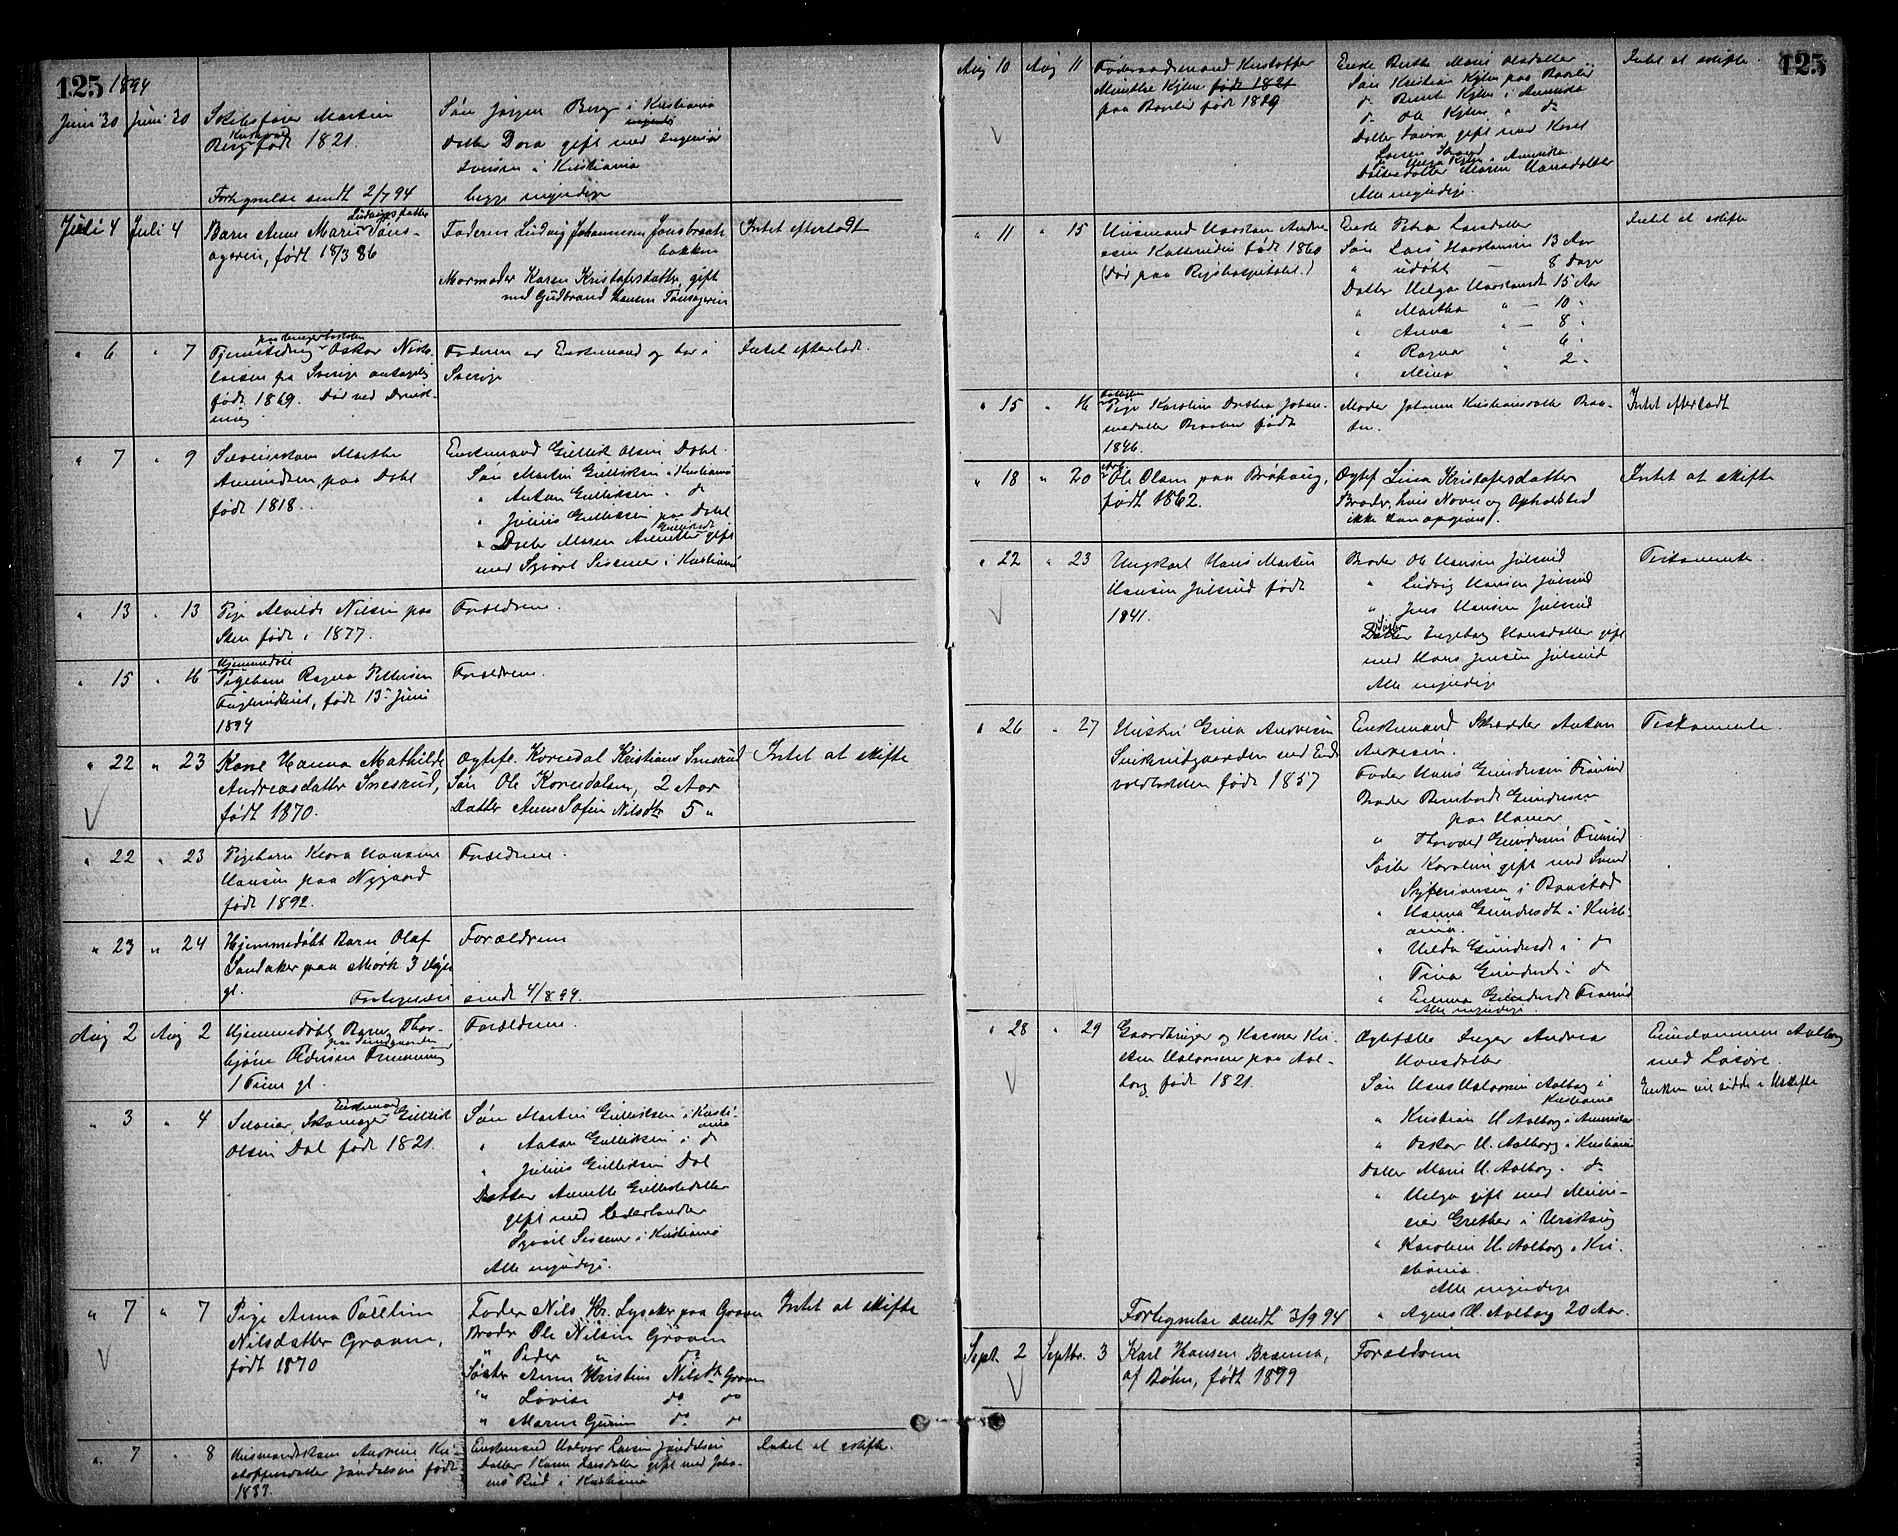 125 1894
Juni 30 Juni 30
Skibsfører Martin
Berg født 1821.
Fortegnelse sendt 2/7 94
Søn Jørgen Berg i Kristiania
Datter Dora gift med Ingeniør
Iversen i Kristiania
begge myndige
Juli 4 Juli 4
Ludvigsdatter
Barn Anne Marie Tøns-
ageren, født 18/3 86
Faderen Ludvig Johannesen Jonsbraate
bakken
Mormoder Karen Kristofersdatter, gift
med Gudbrand Hansen Tønsageren
Intet efterladt
" 6 " 7
Tjenestedreng Oskar
fra Sverige antagelig
født 1869. Død ved Drukt-
ning
Faderen er Enkemand og bor i
Sverige
Intet efterladt.
" 7 " 9
Selveierkone Marthe
Amundsen, paa Dahl
født 1818.
Enkemand Gullik Olsen Dahl.
Søn Martin Gulliksen i Kristiania
" Anton Gulliksen " do
" Julius Gulliksen paa Dahl
" Datter Maren Annette gift
med Sivert Sissener i Kristiania
" 13 " 13
Pige Alvilde Nilsen paa
Sten født i 1877.
Forældrene.
" 15 " 16
Hjemmedøbt
Pigebarn Ragna Pettersen
født 13de Juni
1894
Forældrene.
" 22 " 23
Kone Hanna Mathilde
Andreasdatter Snesrud,
født 1870.
Ogtef. Kornedal Kristians Snesrud
Søn Ole Kornedalsen, 2 Aar
Datter Anne Sofie Nilsdtr 5 "
Intet at skifte
" 22 " 23
Pigebarn Klara Hansine
Hansen paa Nygaard
født 1892.
Forældrene.
" 23 " 24
Hjemmedøbt Barn Olaf
Sandaker paa Mørk 3 Dage
gl.
Fortegnelse sendt 4/8 94.
Forældrene
Aug 2 Aug 2
Hjemmedøbt Barn Thor-
bjørn Pedersen
1 Time gl.
Forældrene.
" 3 " 4
Enkemand
Selveier, Skomager Gullik
Olsen Dal født 1821.
Søn Martin Gulliksen i Kristi-
ania
" Anton Gulliksen i do
" Julius Gulliksen Dal
Datter Annette Gulliksdatter
gift med Lederhandler
Sivert Sissener i Kristiania
Alle myndige.
" 7 " 7
Pige Anna Pauline
Nilsdatter Graven,
født 1870
Fader Nils Kr. Lysaker paa Graven
Broder Ole Nilsen Graven
" Peder " do
Søster Anne Kristine Nilsdtr Graven
" Lovise do do
" Maren Gurine do do
Intet at skifte
" 7 " 8
Husmandskone Andrine Kri-
stoffersdatter Jøndalseie født
1833
Enkemand Halvor Larsen Jøndalseie
Datter Karen Larsdatter gift med Joha-
nes Rud i Kristiania
Intet at skifte.
125
Aug 10 Aug 11
Føderaadsmand Kristoffer
Minthe Kjlen født 1821
paa født 1819
Enke Berthe Marie Olsdatter
Søn Kristian Kjlen paa
do Bernt Kjlen i Amerika
do Ole Kjlen " do
Datter Laura gift med Karl
Larsen Strand
" Helga Kjlen i Amerika
Datterdatter Maren Hansdatter
Alle myndige.
Intet at skifte
" 11 " 15
Husmand Haastan Andre-
asen født 1860
(Død paa Rigshospitalet.)
Enke Petra Larsdatter
Søn Lars Haastansen 13 Aar
" udøbt — 8 Dage
Datter Helga Haastansdt 15 Aar
" Martha " — 10 "
" Anna " — 8 "
" Ragna " 6 "
" Mina " 2 "
Intet at skifte
" 15 " 16
Pige Karoline Dorthea Johan-
nesdatter Braaten født
1846.
Moder Johanne Kristiansdatter Braa-
ten.
Intet efterladt
" 18 " 20
Arb. Ole Olsen paa Brøhaug,
født 1862.
Ogtef Lina Kristofersdatter
Broder, hvis Navn og Opholdsted
ikke kan opgives.
Intet at skifte
" 22 " 23
Ungkarl Hans Martin
Hansen Julsrud født
1841.
Broder Ole Hansen Julsrud
" Ludvig Hansen Julsrud
" Jens Hansen Julsrud
Søster Ingeborg Hansdatter gift
med Hans Jensen Julsrud
Alle myndige
Testamente.
" 26 " 27
Hustru Gina Andresen
ved Eids-
voldbakken født 1857
Enkemand Skrædder Anton
Andresen.
Fader Hans Gundersen
Broder Bernhard Gundersen
paa Hamar
" Thorvald Gundersen
Søster Karoline gift med Svend
Syversensen i Baastad
" Hanna Gundersdt i Kristi-
ania.
" Hilda Gundersdt i do
" Tina Gundersdt i do
" Emma Gundersdt
Alle myndige.
Testamente.
" 28 " 29
Gaardbruger og Kasserer Kri-
sten Halvorsen paa Aal-
borg født 1821.
Fortegnelse sendt 3/9 94
Ogtefælle Inger Andrea
Hansdatter
Søn Hans Halvorsen Aalborg i
Kristiania
" Kristian H. Aalborg i Amerika
" Oskar H. Aalborg i Kristiania
Datter Marie H. Aalborg. do
" Helga gift med
Grether i Urskaug
" Karoline H. Aalborg i Kri-
stiania.
Alle myndige
" Agnes H. Aalborg 20 Aar.
Eiendommen Aalborg
med Løsøre.
Enken vil sidde i Uskifte
Sept. 2 Septbr. 3
Karl Hansen Brænna,
af Bøhn, født 1879
Forældrene